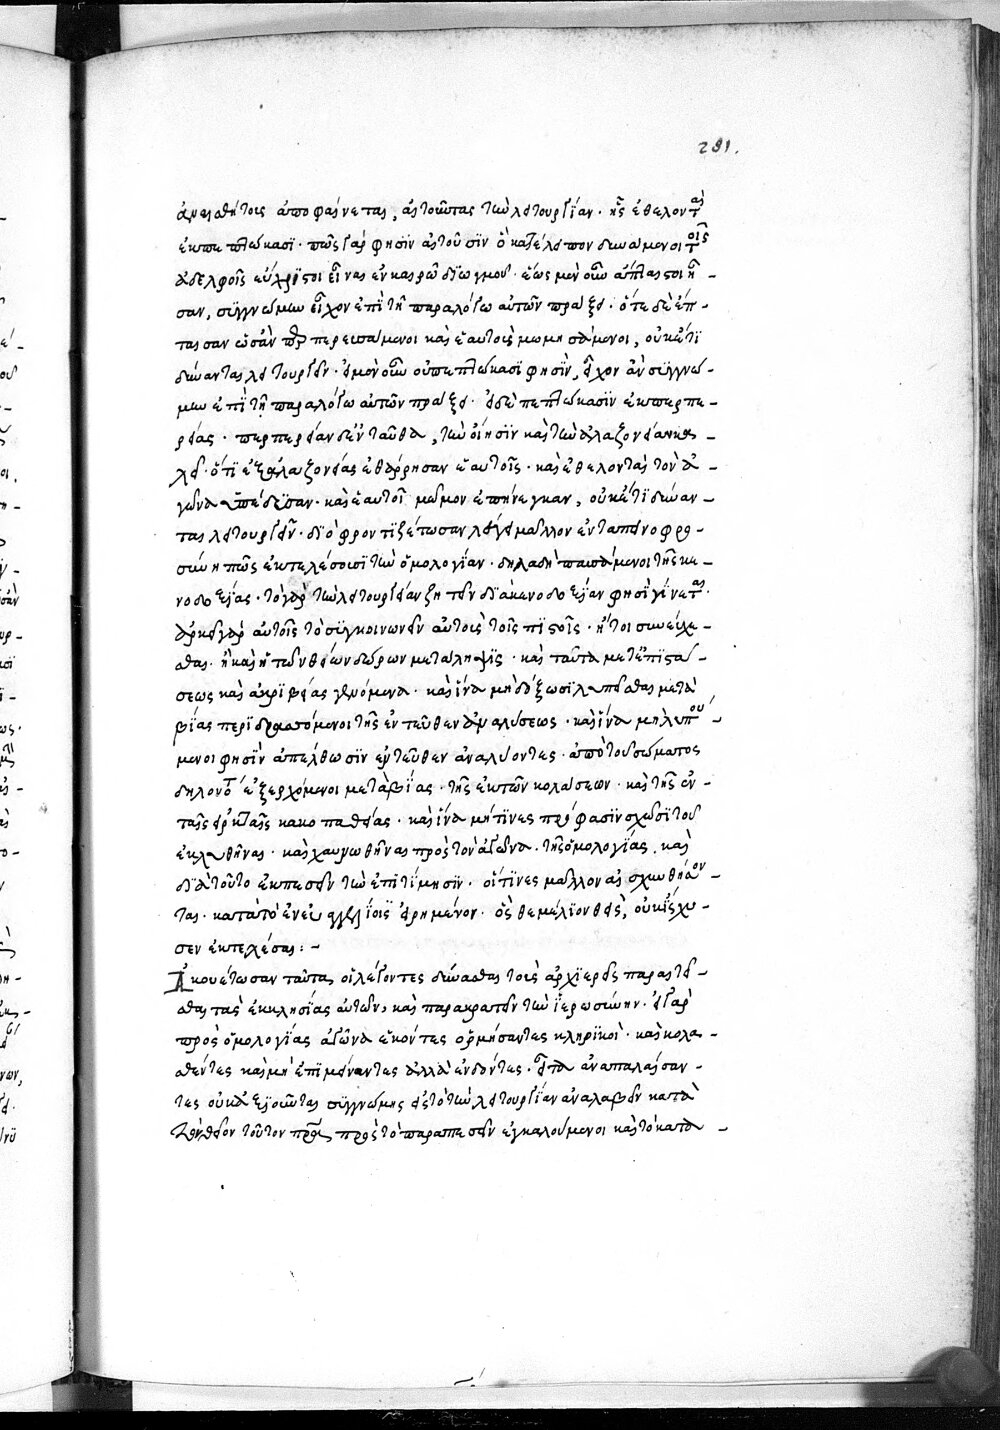 291.
ἀμειαθήτοις ἀποφαίνεται, αἰτιῶντας τὴν λειτουργίαν. ἧς ἐθελονταὶ
ἐκπεπτώκασι. πῶς γὰρ φησὶν αἰτοῦσιν ὃ κατέλιπον δυνάμενοι τοῖς
ἀδελφοῖς εὔχρηστοι εἶναι ἐν καιρῶ διωγμοῦ. ἕως μὲν οὖν ἄπλαστοι ἦ-
σαν, συγγνώμην εἶχον ἐπὶ τῆ παραλόγω αὐτῶν πράξει. ὅτε δὲ ἔπ-
ταισαν ὡσὰν περπερευσάμενοι καὶ ἑαυτοὺς μωμησάμενοι, οὐκέτι
δύνανται λειτουργεῖν. εἰ μὲν οὖν οὐ πεπτώκασι φησὶν, εἶχον ἂν συγγνώ-
μην ἐπὶ τῆ παραλόγω αὐτῶν πράξει. εἰ δὲ πεπτώκασιν ἐκ περπε-
ρείας. περπερείαν δ' ἐνταῦθα, τὴν οἴησιν καὶ τὴν ἀλαζονείαν κα-
λεῖ. ὅτι ἐξ ἀλαζονείας ἐθάρρησαν ἑαυτοῖς. καὶ ἐθελοντὰς τὸν ἀ-
γῶνα ὑπέδεισαν. καὶ ἑαυτοῖ μῶμον ἐπήνεγκαν, οὐκέτι δύναν-
ται λειτουργεῖν. διὸ φροντιζέτωσαν λέγει μᾶλλον ἐν ταπεινοφρο-
σύνη πῶς ἐκτελέσουσι τὴν ὁμολογίαν. δηλαδὴ παυσάμενοι τῆς κε-
νοδοξίας. τὸ γὰρ τὴν λειτουργίαν ζητεῖν διὰ κενοδοξίαν φησὶ γίνεται.
ἀρκεῖ γὰρ αὐτοῖς τὸ συγκοινωνεῖν αὐτοῖς τοῖς πιστοῖς. ἤτοι συνεύχε-
σθαι. ἢ καὶ ἡ τῶν θείων δώρων μετάληψις. καὶ ταῦτα μετ' ἐπιστά-
σεως καὶ ἀκριβείας γενόμενα. καὶ ἵνα μὴ δόξωσι λυπεῖσθαι μετὰ
βίας περιδρασσόμενοι τῆς ἐντεῦθεν ἀναλύσεως. καὶ ἵνα μὴ λυπού-
μενοι φησὶν ἀπέλθωσιν ἐντεῦθεν ἀναλύοντες. ἀπὸ τοῦ σώματος
δηλονότι ἐξερχόμενοι μετὰ βίας. τῆς ἐκ τῶν κολάσεων. καὶ τῆς ἐν
ταῖς εἱρκταῖς κακοπαθείας. καὶ ἵνα μήτινες πρόφασιν σχῶσι τοῦ
ἐκλυθῆναι. καὶ χαυνωθῆναι πρὸς τὸν ἀγῶνα. τῆς ὁμολογίας. καὶ
διὰ τοῦτο ἐκπεσεῖν τὴν ἐπιτίμησιν. οἵτινες μᾶλλον αἰσχυνθήσον-
ται. κατὰ τὸ ἐν εὐαγγελίοις εἰρημένον. ὃς θεμέλιον θεὶς, οὐκ ἴσχυ-
σεν ἐκτελέσαι:-
Ἀκουέτωσαν ταῦτα οἱ λέγοντες δύνασθαι τοὺς ἀρχιερεῖς παραιτεῖ-
σθαι τὰς ἐκκλησίας αὐτῶν, καὶ παρακρατεῖν τὴν ἱερωσύνην. εἰ γὰρ
πρὸς ὁμολογίας ἀγῶνα ἑκόντες ὁρμήσαντες κληρικοὶ. καὶ κολα-
σθέντες καὶ μὴ ἐπιμείναντες ἀλλὰ ἐνδόντες. εἶτα ἀναπαλαίσαν-
τες οὐκ ἀξιοῦνται συγγνώμης εἰς τὸ τὴν λειτουργίαν ἀναλαβεῖν κατὰ
τὸν θεῖον τοῦτον πατέρα πρὸς τὸ παραπεσεῖν ἐγκαλούμενοι καὶ τὸ κατα-